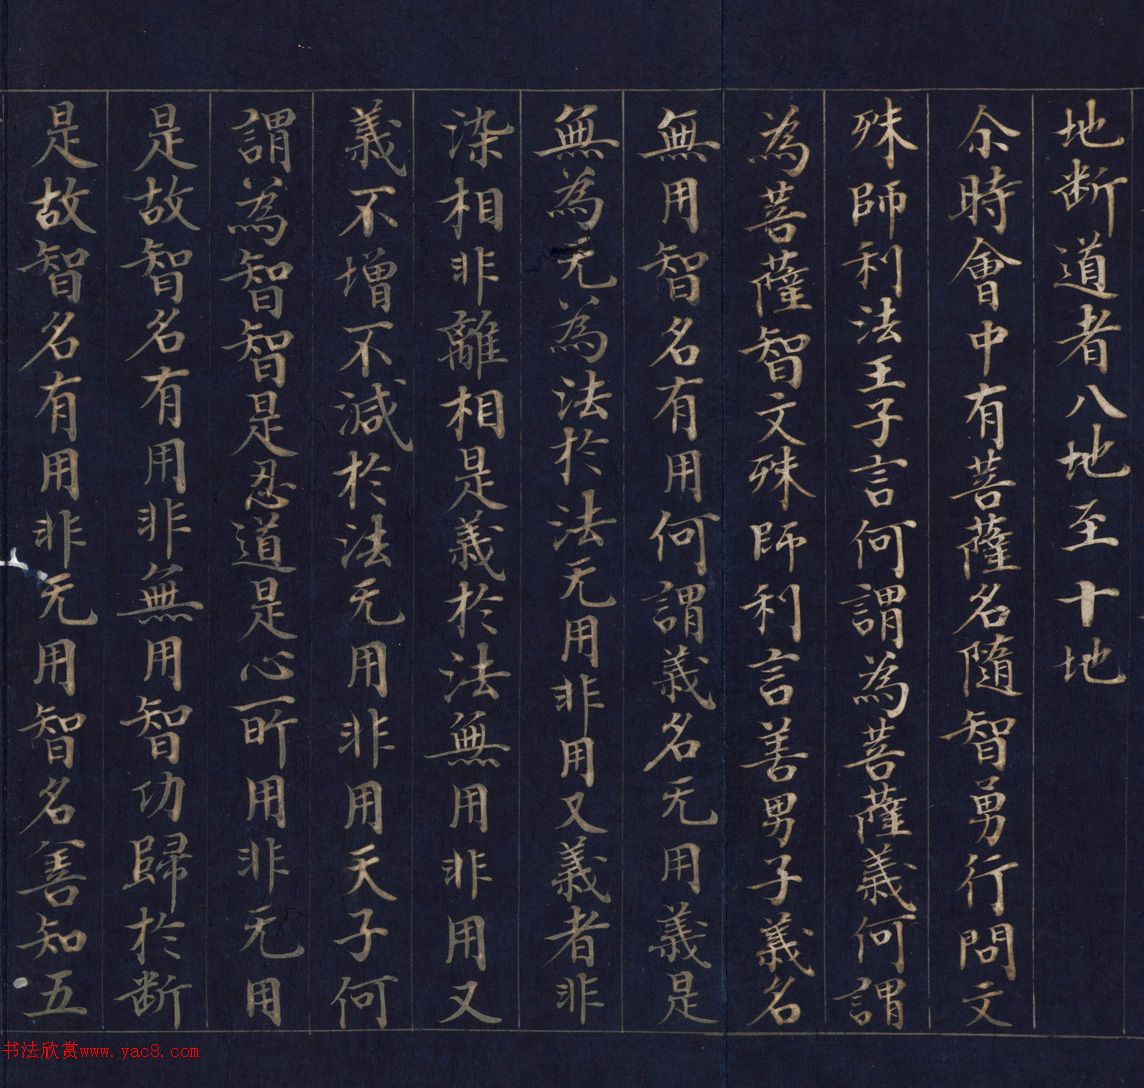 地断道者八地至十地
尒時會中有菩薩名隨智勇行問文
殊師利法王子言何謂為菩薩義何謂
為菩薩智文殊師利言善男子義名
無用智名有用何謂義名无用義是
無為无為法於法无用非用又義者非
染相非離相是義於法無用非用又
義不增不減於法无用非用天子何
謂為智智是忍道是心所用非无用
是故智名有用非無用智功歸於断
是故智名有用非无用智名善知五
书法欣赏www.yac8.com